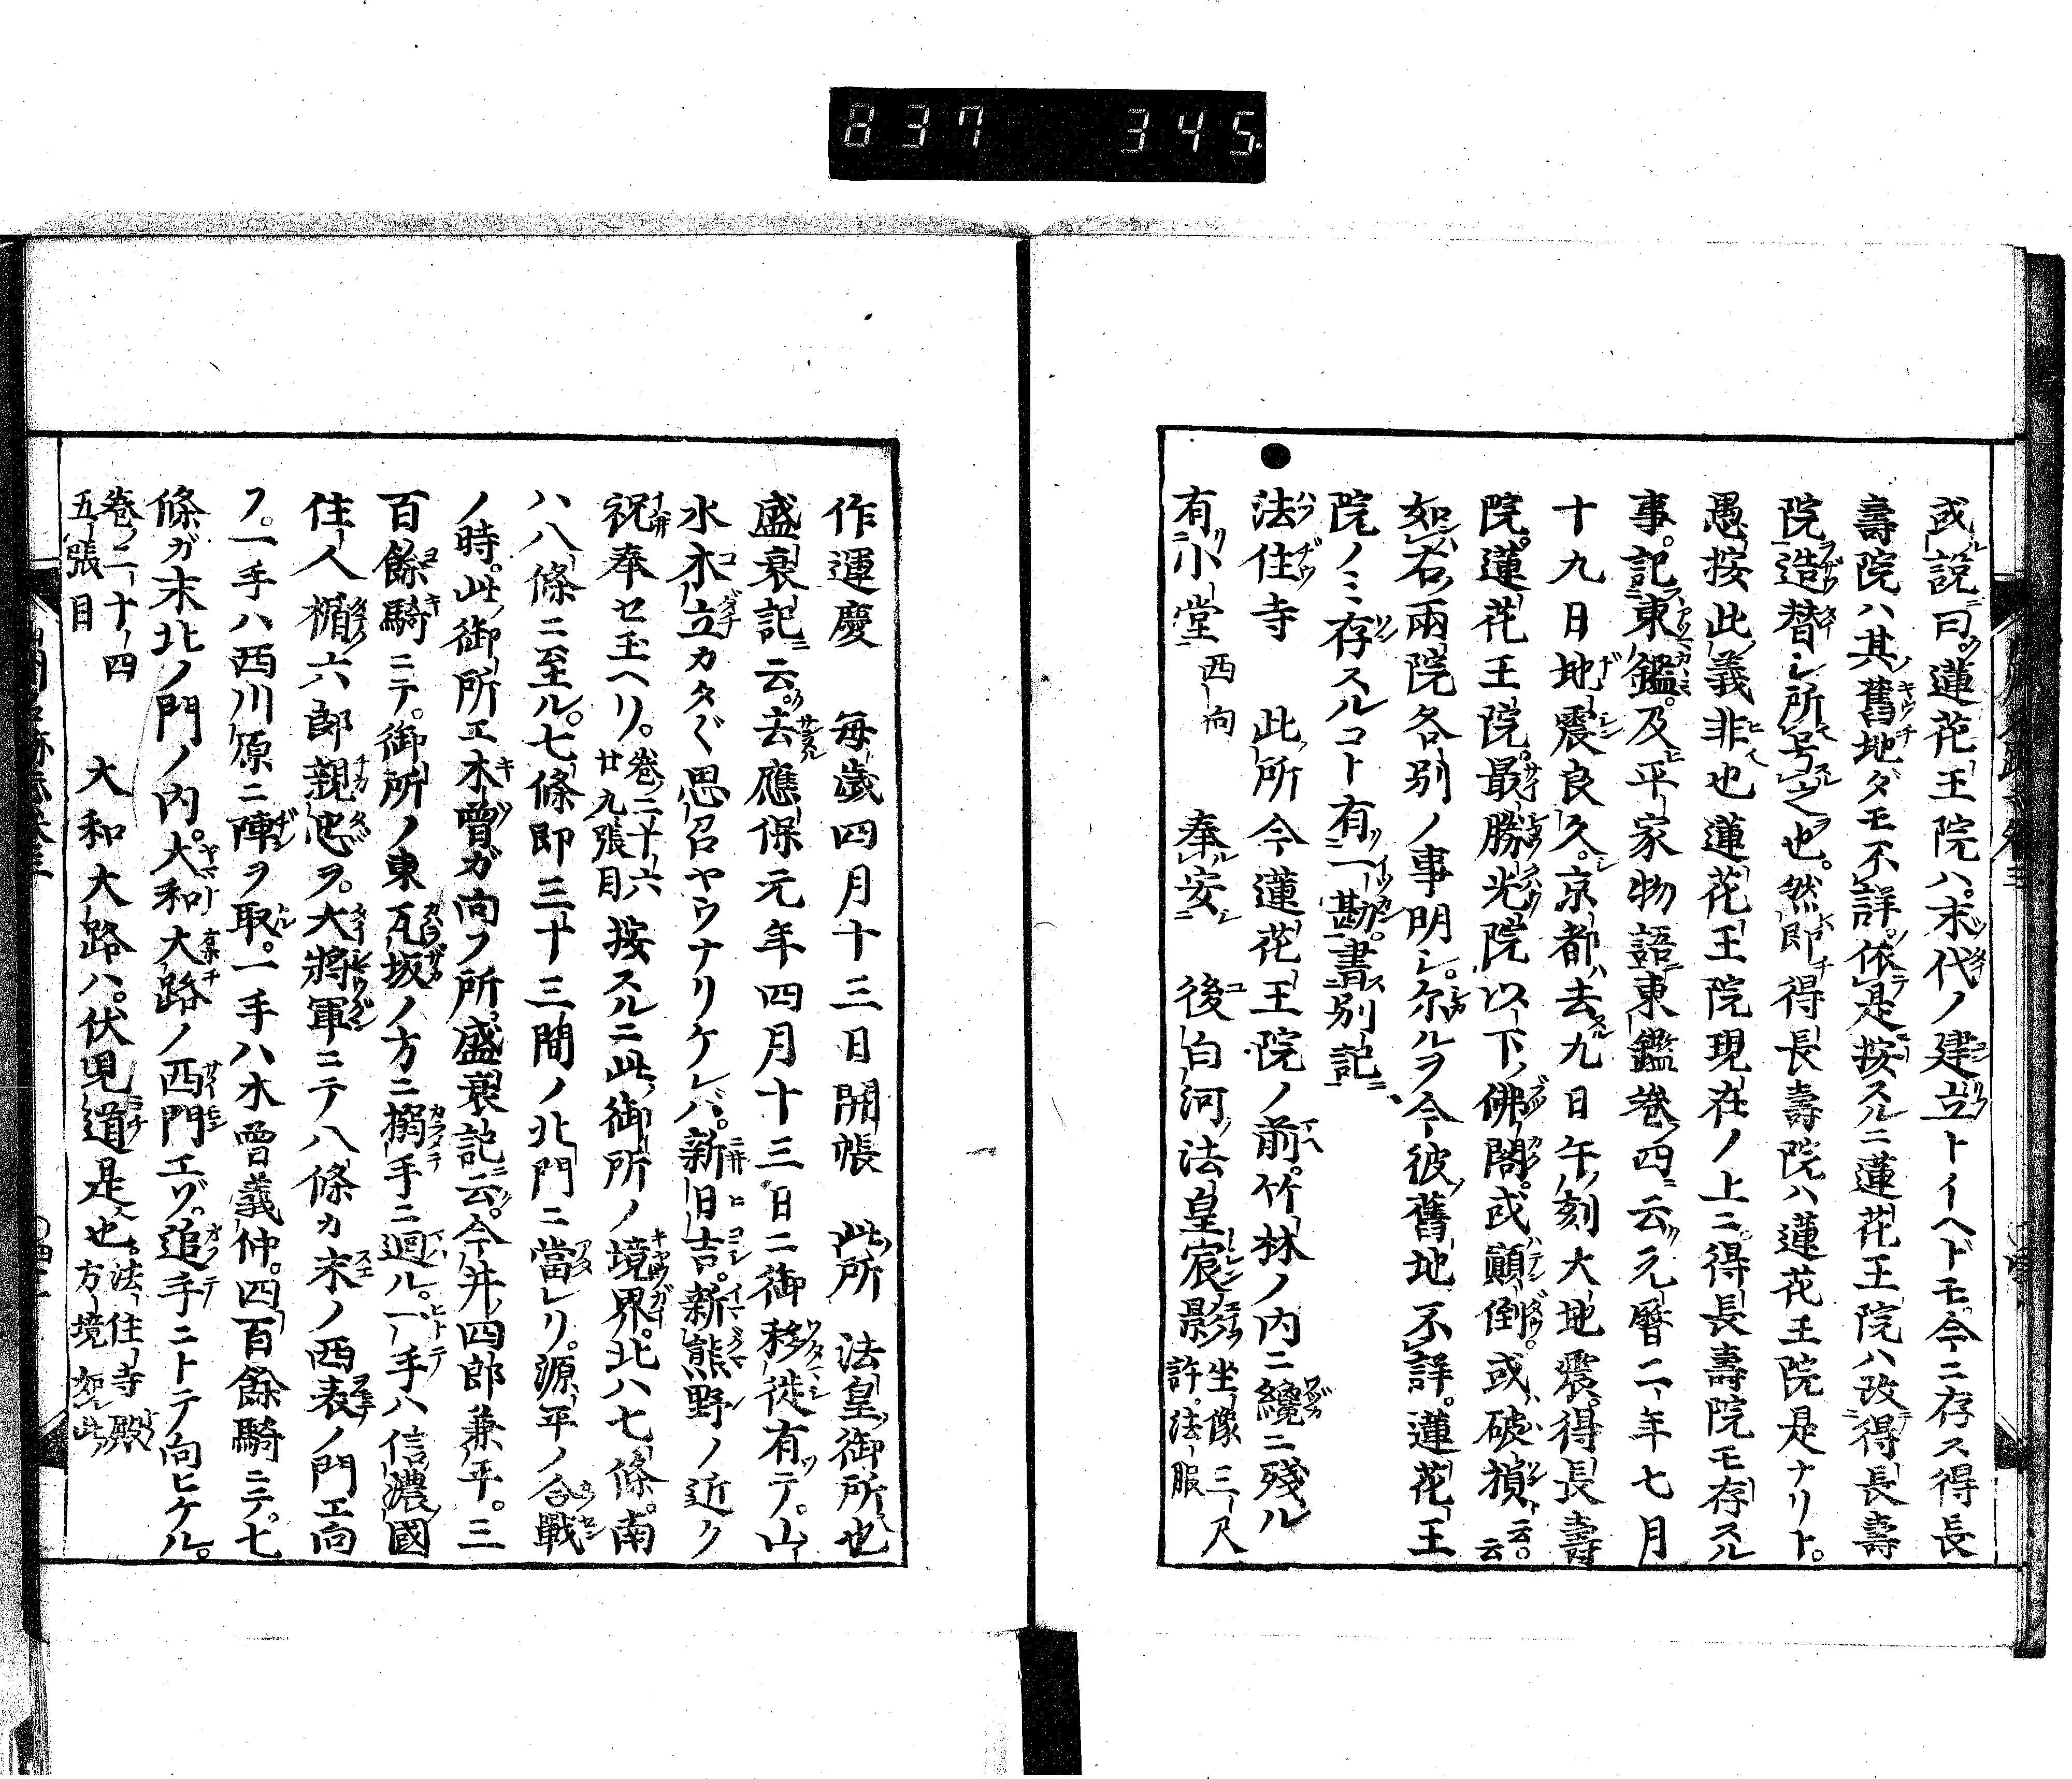 837 345
或説曰蓮花王院ハ。末代ノ建立トイヘドモ今ニ存ス得長
壽院ハ其舊地ダモ不詳。依是按スルニ蓮花王院ハ改得長壽
院造替シ所号之也。然即得長壽院ハ蓮花王院是ナリト。
愚按此義非也蓮花王院現在ノ上ニ。得長壽院モ存スル
事。記東鑑。及平家物語東鑑巻四云元暦二年七月
十九日地震良久。京都去九日午刻大地震。得長壽
院。蓮花王院。最勝光院以下佛閣。或顛倒。或破損云云。
如右兩院各別ノ事明シ。尓ルヲ今彼舊地不詳。蓮花王
院ノミ存スルコト有一勘。書別記
●法住寺 此所今蓮花王院ノ前。竹林ノ内ニ纔ニ殘ル
有小堂 西向 奉安 後白河法皇宸影 坐像三尺許。法服
作運慶 毎歳四月十三日開帳 此所 法皇御所也
盛衰記云。去應保元年四月十三日ニ御移徙有テ。山
水木立カタ〴〵思召ヤウナリケレバ。新日吉。新熊野ノ近ク
祝奉セ玉ヘリ。巻二十六廿九張目 按スルニ此御所ノ境界。北ハ七條。南
ハ八條ニ至ル。七條即三十三間ノ北門ニ當レリ。源平ノ合戰
ノ時。此御所エ木曽ガ向フ所。盛衰記云。今井四郎兼平。三
百餘騎ニテ。御所ノ東瓦坂ノ方ニ搦手ニ廻ル。一手ハ信濃國
住人楯六郎親忠ヲ。大將軍ニテ八條カ末ノ西表ノ門エ向
フ。一手ハ西川原ニ陣ヲ取。一手ハ木曽義仲。四百餘騎ニテ。七
條ガ末北ノ門ノ内。大和大路ノ西門エゾ。追手ニトテ向ヒケル。
巻ノ二十四五張目 大和大路ハ。伏見道是也。法住寺殿方境如此